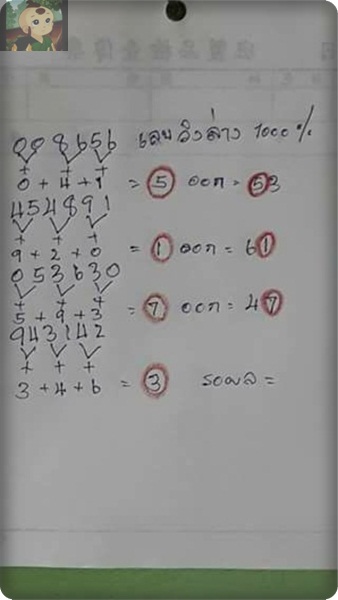 008656 เลขวิ่งล่าง 1000%
+ + +
0+4+1 = 5 ออก = 53
454891
+ + +
9+2+0 = 1 ออก = 61
053630
+ + +
5+9+3 = 7 ออก = 47
943142
+ + +
3+4+6 = 3 รอผล =